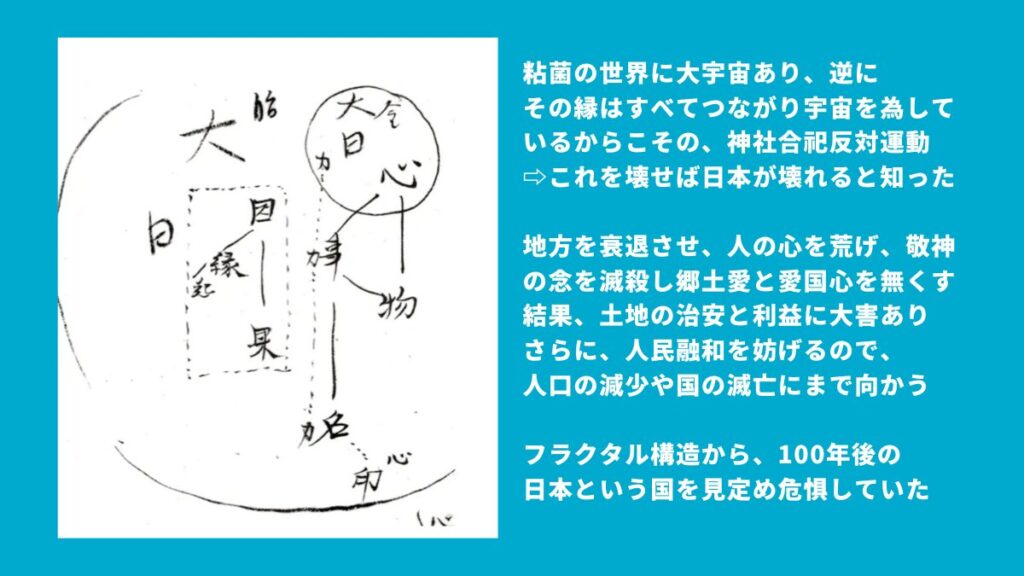 胎
大
日
因
縁
起
果
大 金
日
心
力
事
力
物
名
力
心
印
粘菌の世界に大宇宙あり、逆に
その縁はすべてつながり宇宙を為して
いるからこその、神社合祀反対運動
⇨これを壊せば日本が壊れると知った
地方を衰退させ、人の心を荒げ、敬神
の念を滅殺し郷土愛と愛国心を無くす
結果、土地の治安と利益に大害あり
さらに、人民融和を妨げるので、
人口の減少や国の滅亡にまで向かう
フラクタル構造から、100年後の
日本という国を見定め危惧していた